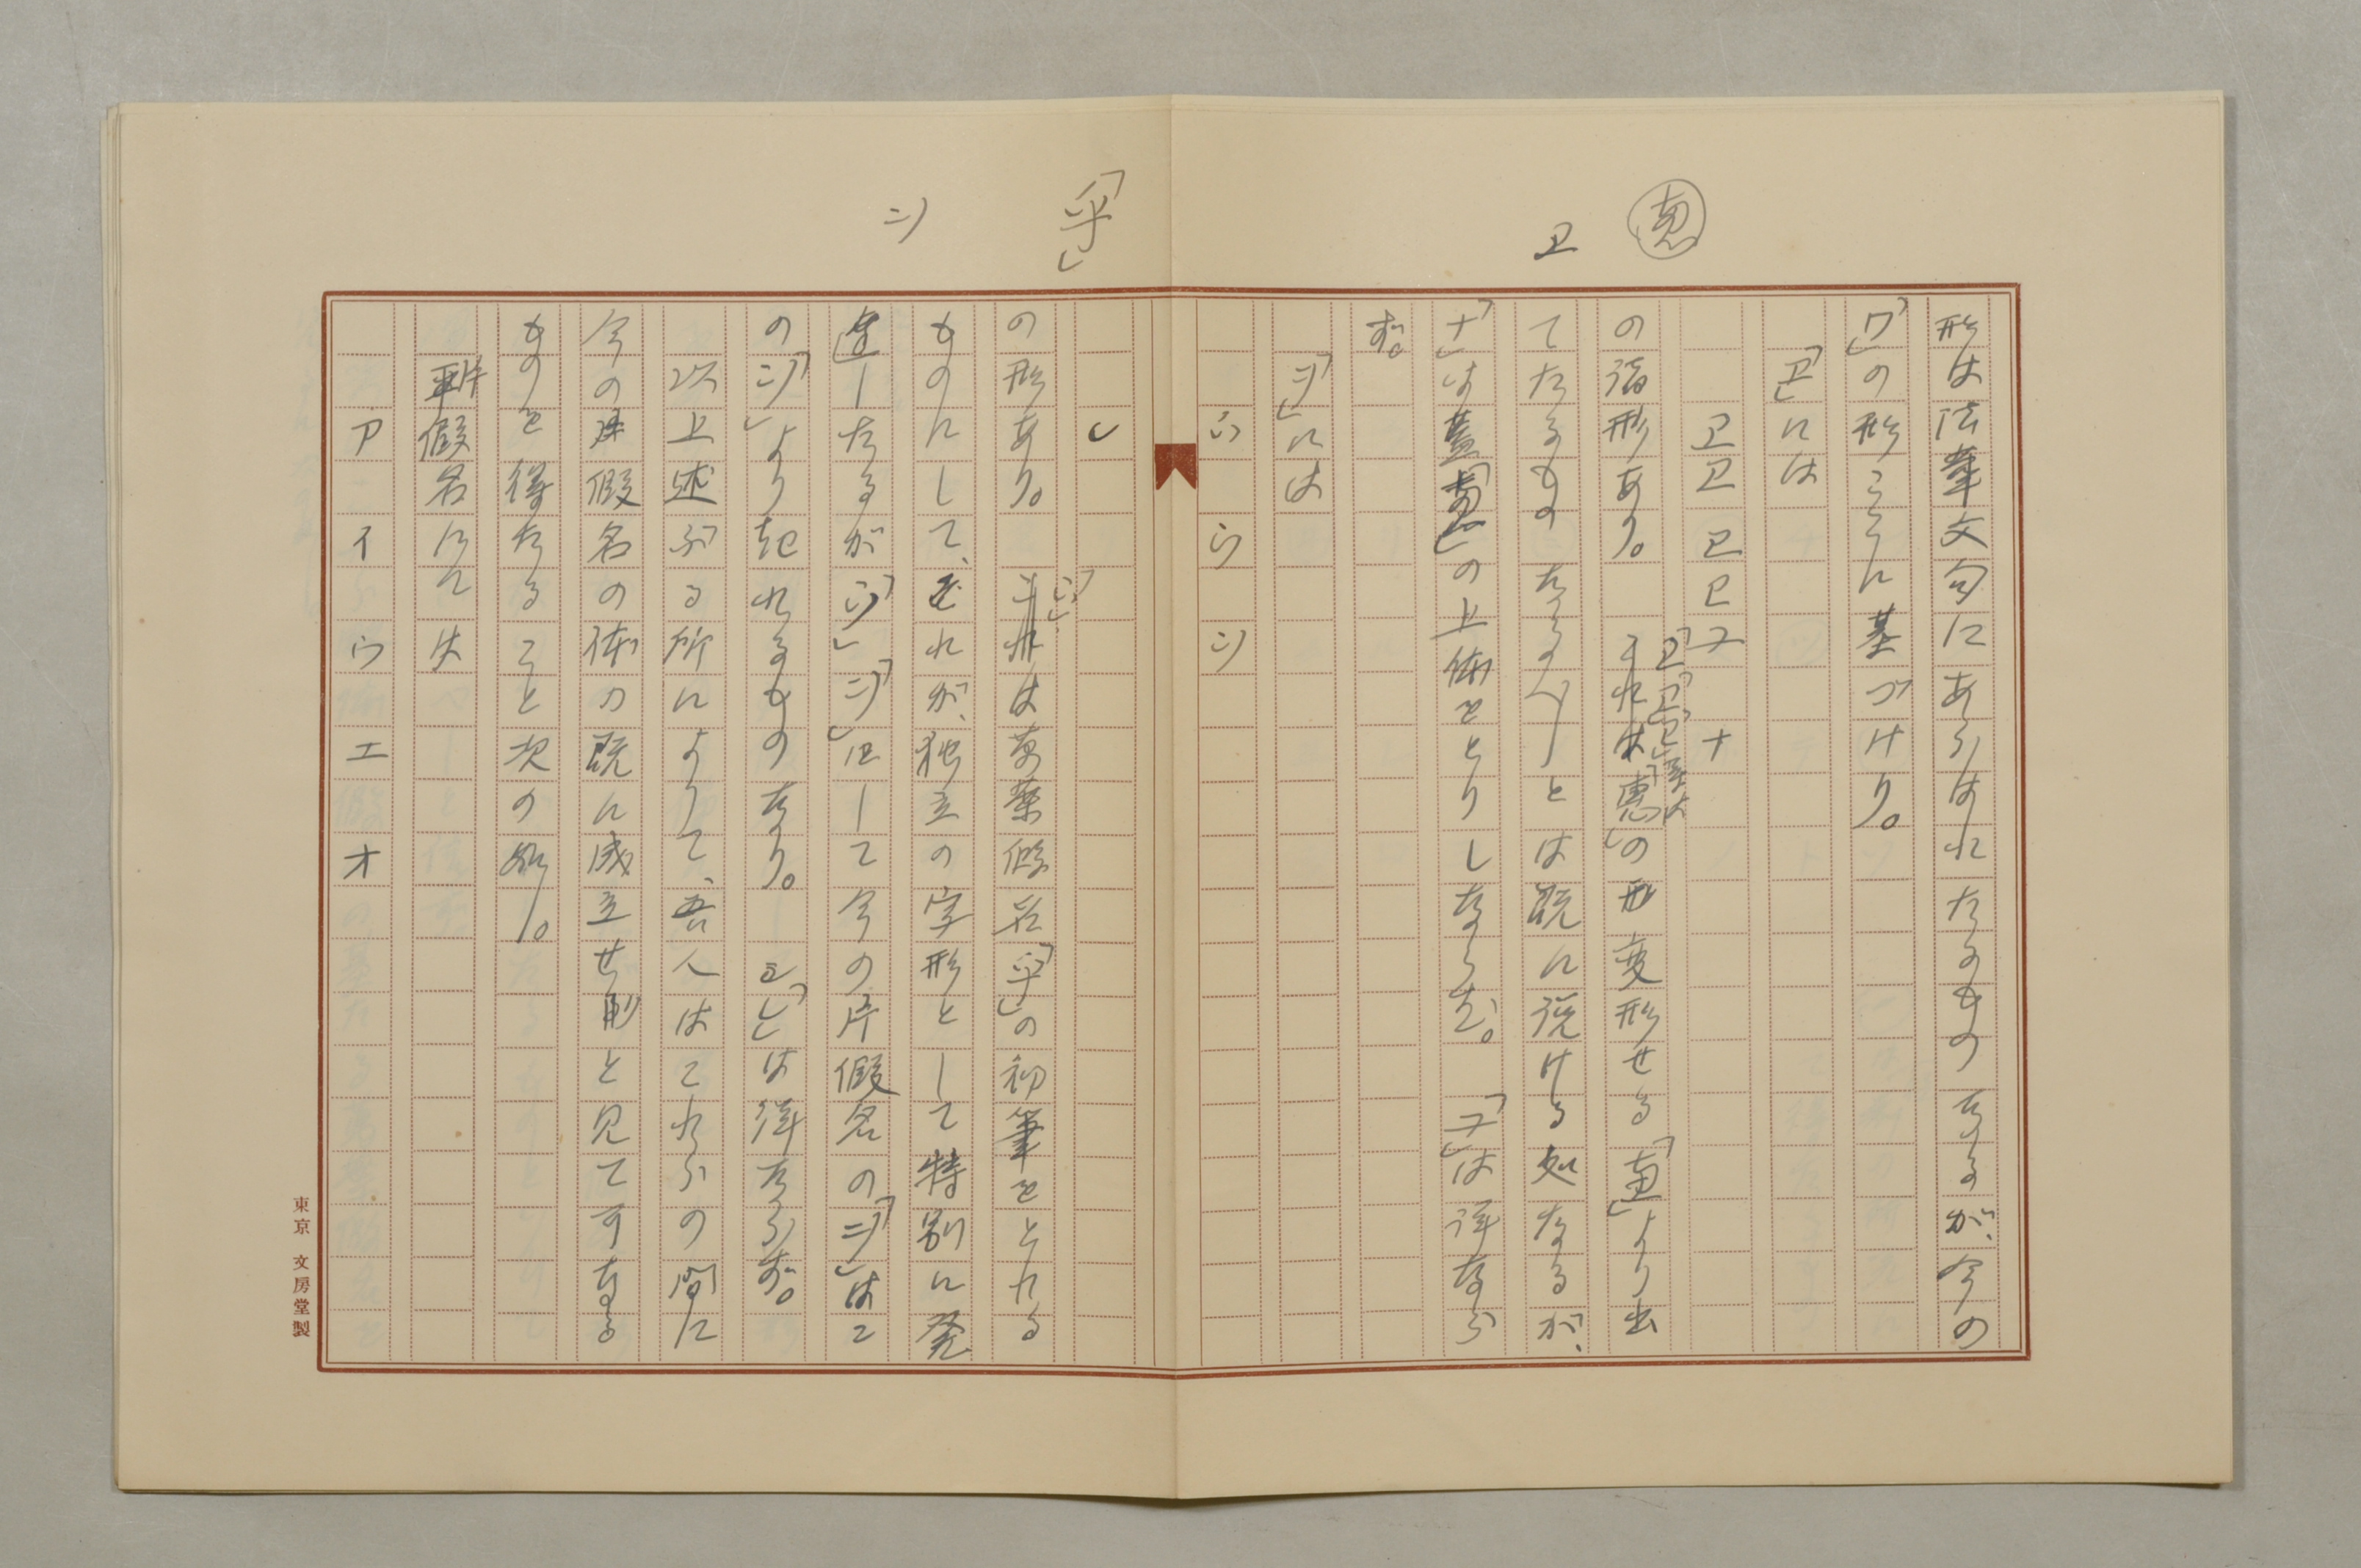 形は法華文句にあらはれたるものなるが、今の
「ワ」の形こゝに基づけり。
「ヱ」には
ヱ ヱ ヱ ヱ ヱ ナ
の諸形あり。
これは「惠」の形変形せる「恵」より出
てたるものなるべしとは既に説ける処なるが、
「ナ」は蓋「恵」の上体をとりしならむ。「ヱ」は詳ならず。
「ン」には
レ
の形あり。
は萬葉假名「㝵」の初筆をとれる
ものにして、それが、独立の字形として特別に発
達したるが「」「ン」にして今の片假名の「ン」はこ
の「ン」より起れるものなり。「レ」は詳ならず。
以上述ぶる所によりて、吾人はこれらの間に
今の片假名の体の既に成立せりと見て可なる
ものを得たること次の如し。
片假名にては
ア イ ウ エ オ
東京 文房堂製